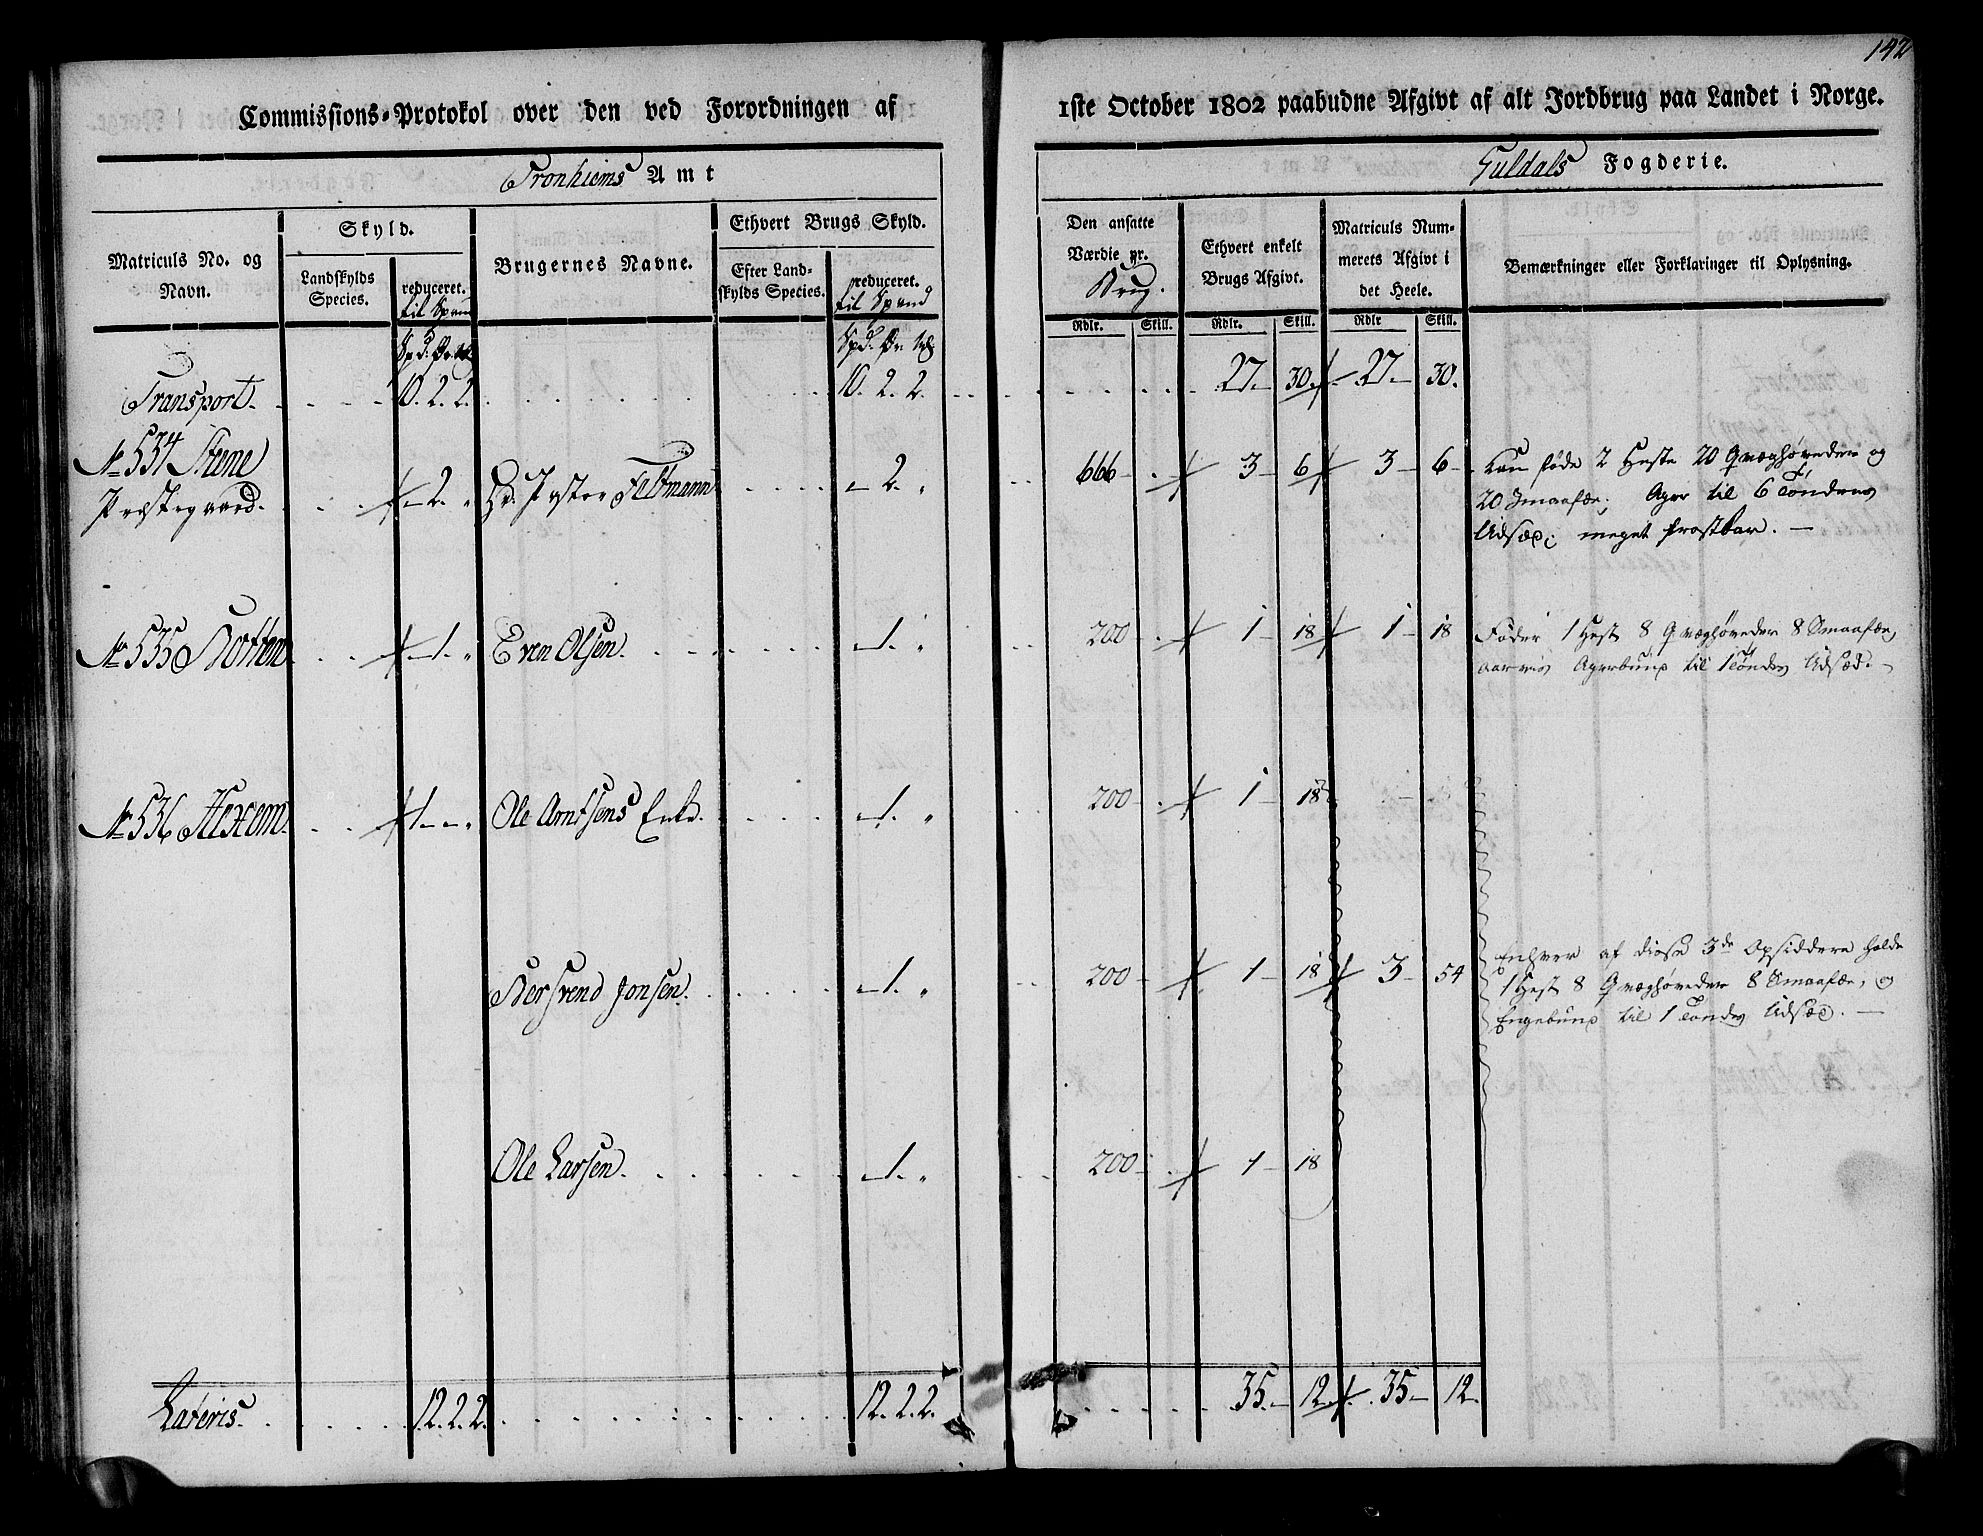 142
Commissions-Protokol over den ved Forordningen af 1ste October 1802 paabudne Afgivt af alt Jordbrug paa Landet i Norge.
Tronhiems Amt
Guldals Fogderie.
Matriculs No. og Navn.
Skyld.
Landskylds Species.
reduceret. til Spand
Brugernes Navne.
Ethvert Brugs Skyld.
Efter Landskylds Species.
reduceret. til Spand
Den ansatte Værdie pr. Brug.
Ethvert enkelt Brugs Afgivt.
Matriculs Nummerets Afgivt i det Heele.
Bemærkninger eller Forklaringer til Oplysning.
Rdlr. Skill. Rdlr. Skill. Rdlr Skill.
Transport. 10. 2. 2. 10. 2. 2. 27. 30. 27 30.
No 534 Steene Præstegaard. 2. " Hr. Pastor Feltmann 2. " 666 3 6 3 6 kan føde 2 Heste 20 Qvæghøveder og
20 Smaafæe; Ager til 6 Tønders
Udsæd; meget frostbar.
No 535 Kotten 1. " Even Olsen. 1. " 200 1 18 1 18 Føder 1 Hest 8 Qvæghøveder 8 Smaafæe,
Agerbund til 1 Tønde Udsæd.
No 536 1. " Ole Arntsens Enke. 1. " 200 1 18
Bersvend Jonsen. 1. " 200 1 18 3 54 Enhver af disse 3de Opsiddere holde
1 Hest 8 Qvæghøveder 8 Smaafæe, og
til 1 Tønde Udsæd.
Ole Larsen. 1. " 200 1 18
Lateris. 12. 2. 2. 12. 2. 2. 35. 12. 35 12.